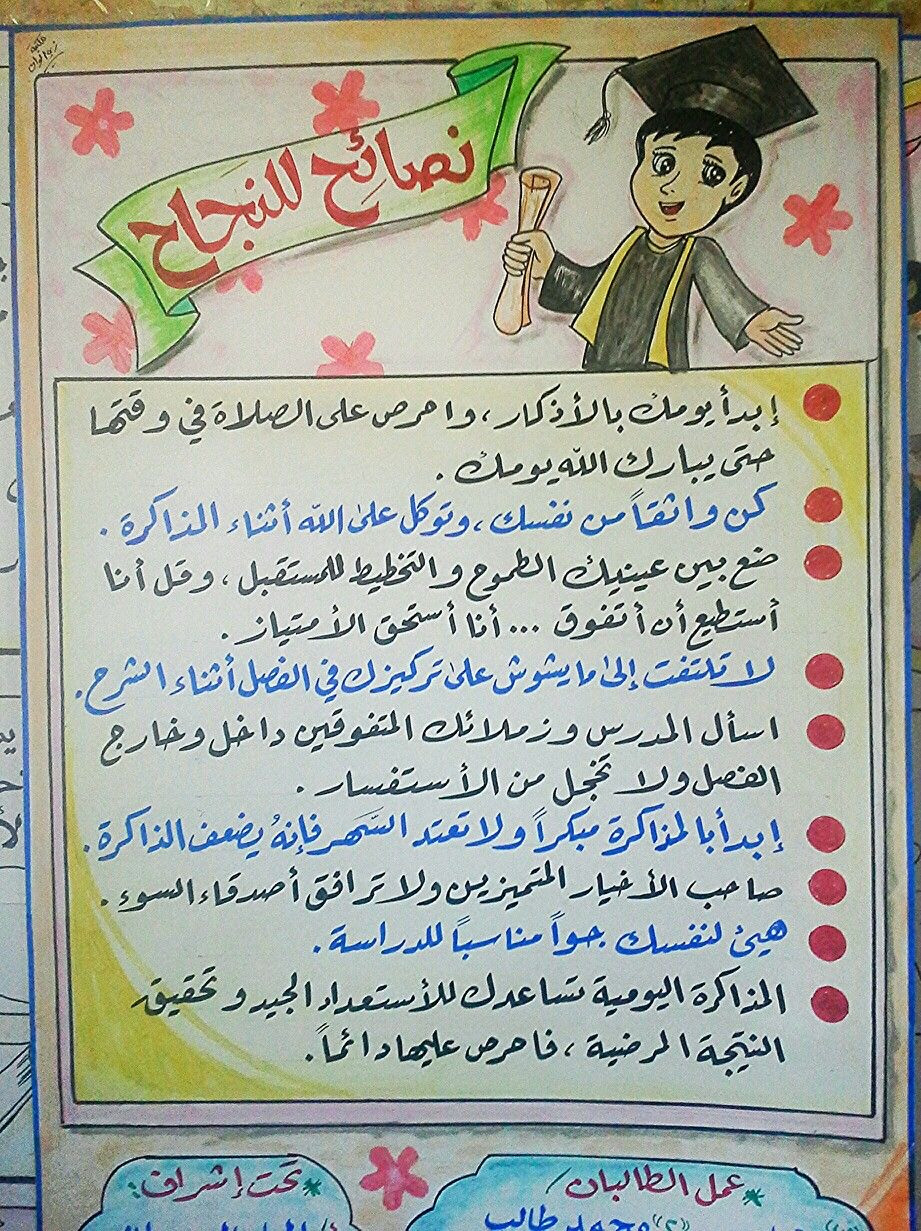 مكتبة
نصائح للنجاح
إبدأ يومك بالأذكار ، واحرص على الصلاة في وقتها
حتى يبارك الله يومك .
كن واثقاً من نفسك ، وتوكل على الله أثناء المذاكرة .
ضع بين عينيك الطموح والتخطيط للمستقبل ، وقل أنا
أستطيع أن أتفوق ... أنا أستحق الأمتياز .
لا تلتفت إلى ما يشوش على تركيزك في الفصل أثناء الشرح .
اسأل المدرس وزملائك المتفوقين داخل وخارج
الفصل ولا تخجل من الأستفسار .
إبدأ بالمذاكرة مبكراً ولا تعتد السَّهر فإنهُ يضعف الذاكرة .
صاحب الأخيار المتميزين ولا ترافق أصدقاء السوء .
هيئ لنفسك جواً مناسباً للدراسة .
المذاكرة اليومية تساعدك للأستعداد الجيد وتحقيق
النتيجة المرضية ، فاحرص عليها دائماً .
عمل الطالبان /
تحت إشراف :
طالب